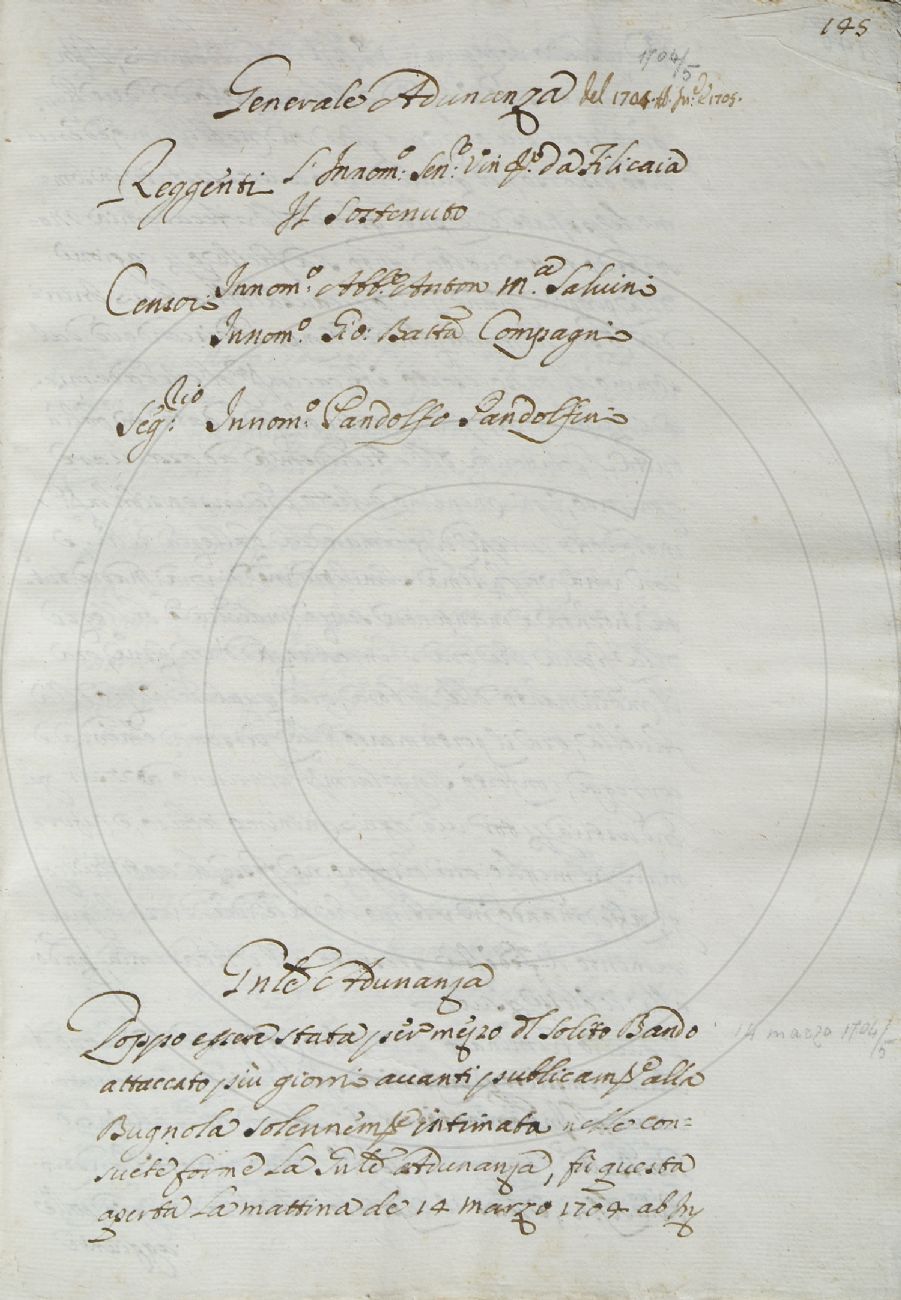 145
1704/5
Generale Adunanza del 1704. Ab Inc.e 1705.
Reggenti L'Innom:o Sen:re Vin.o da Filicaia
Il Sostenuto
Censori Innom:o Abb.e Anton M.a Salvini
Innom:o Gio: Batta Compagni
Seg:rio Innom:o Pandolfo Pandolfini
Gnle Adunanza
Doppo essere stata per mezzo dl solito Bando
14 marzo 1704/5
attaccato più giorni avanti publicam.te alla
Bugnola solennem.te intimata nelle con=
suete forme la Gnle Adunanza, fù questa
aperta la mattina de 14 marzo 1704 ab In